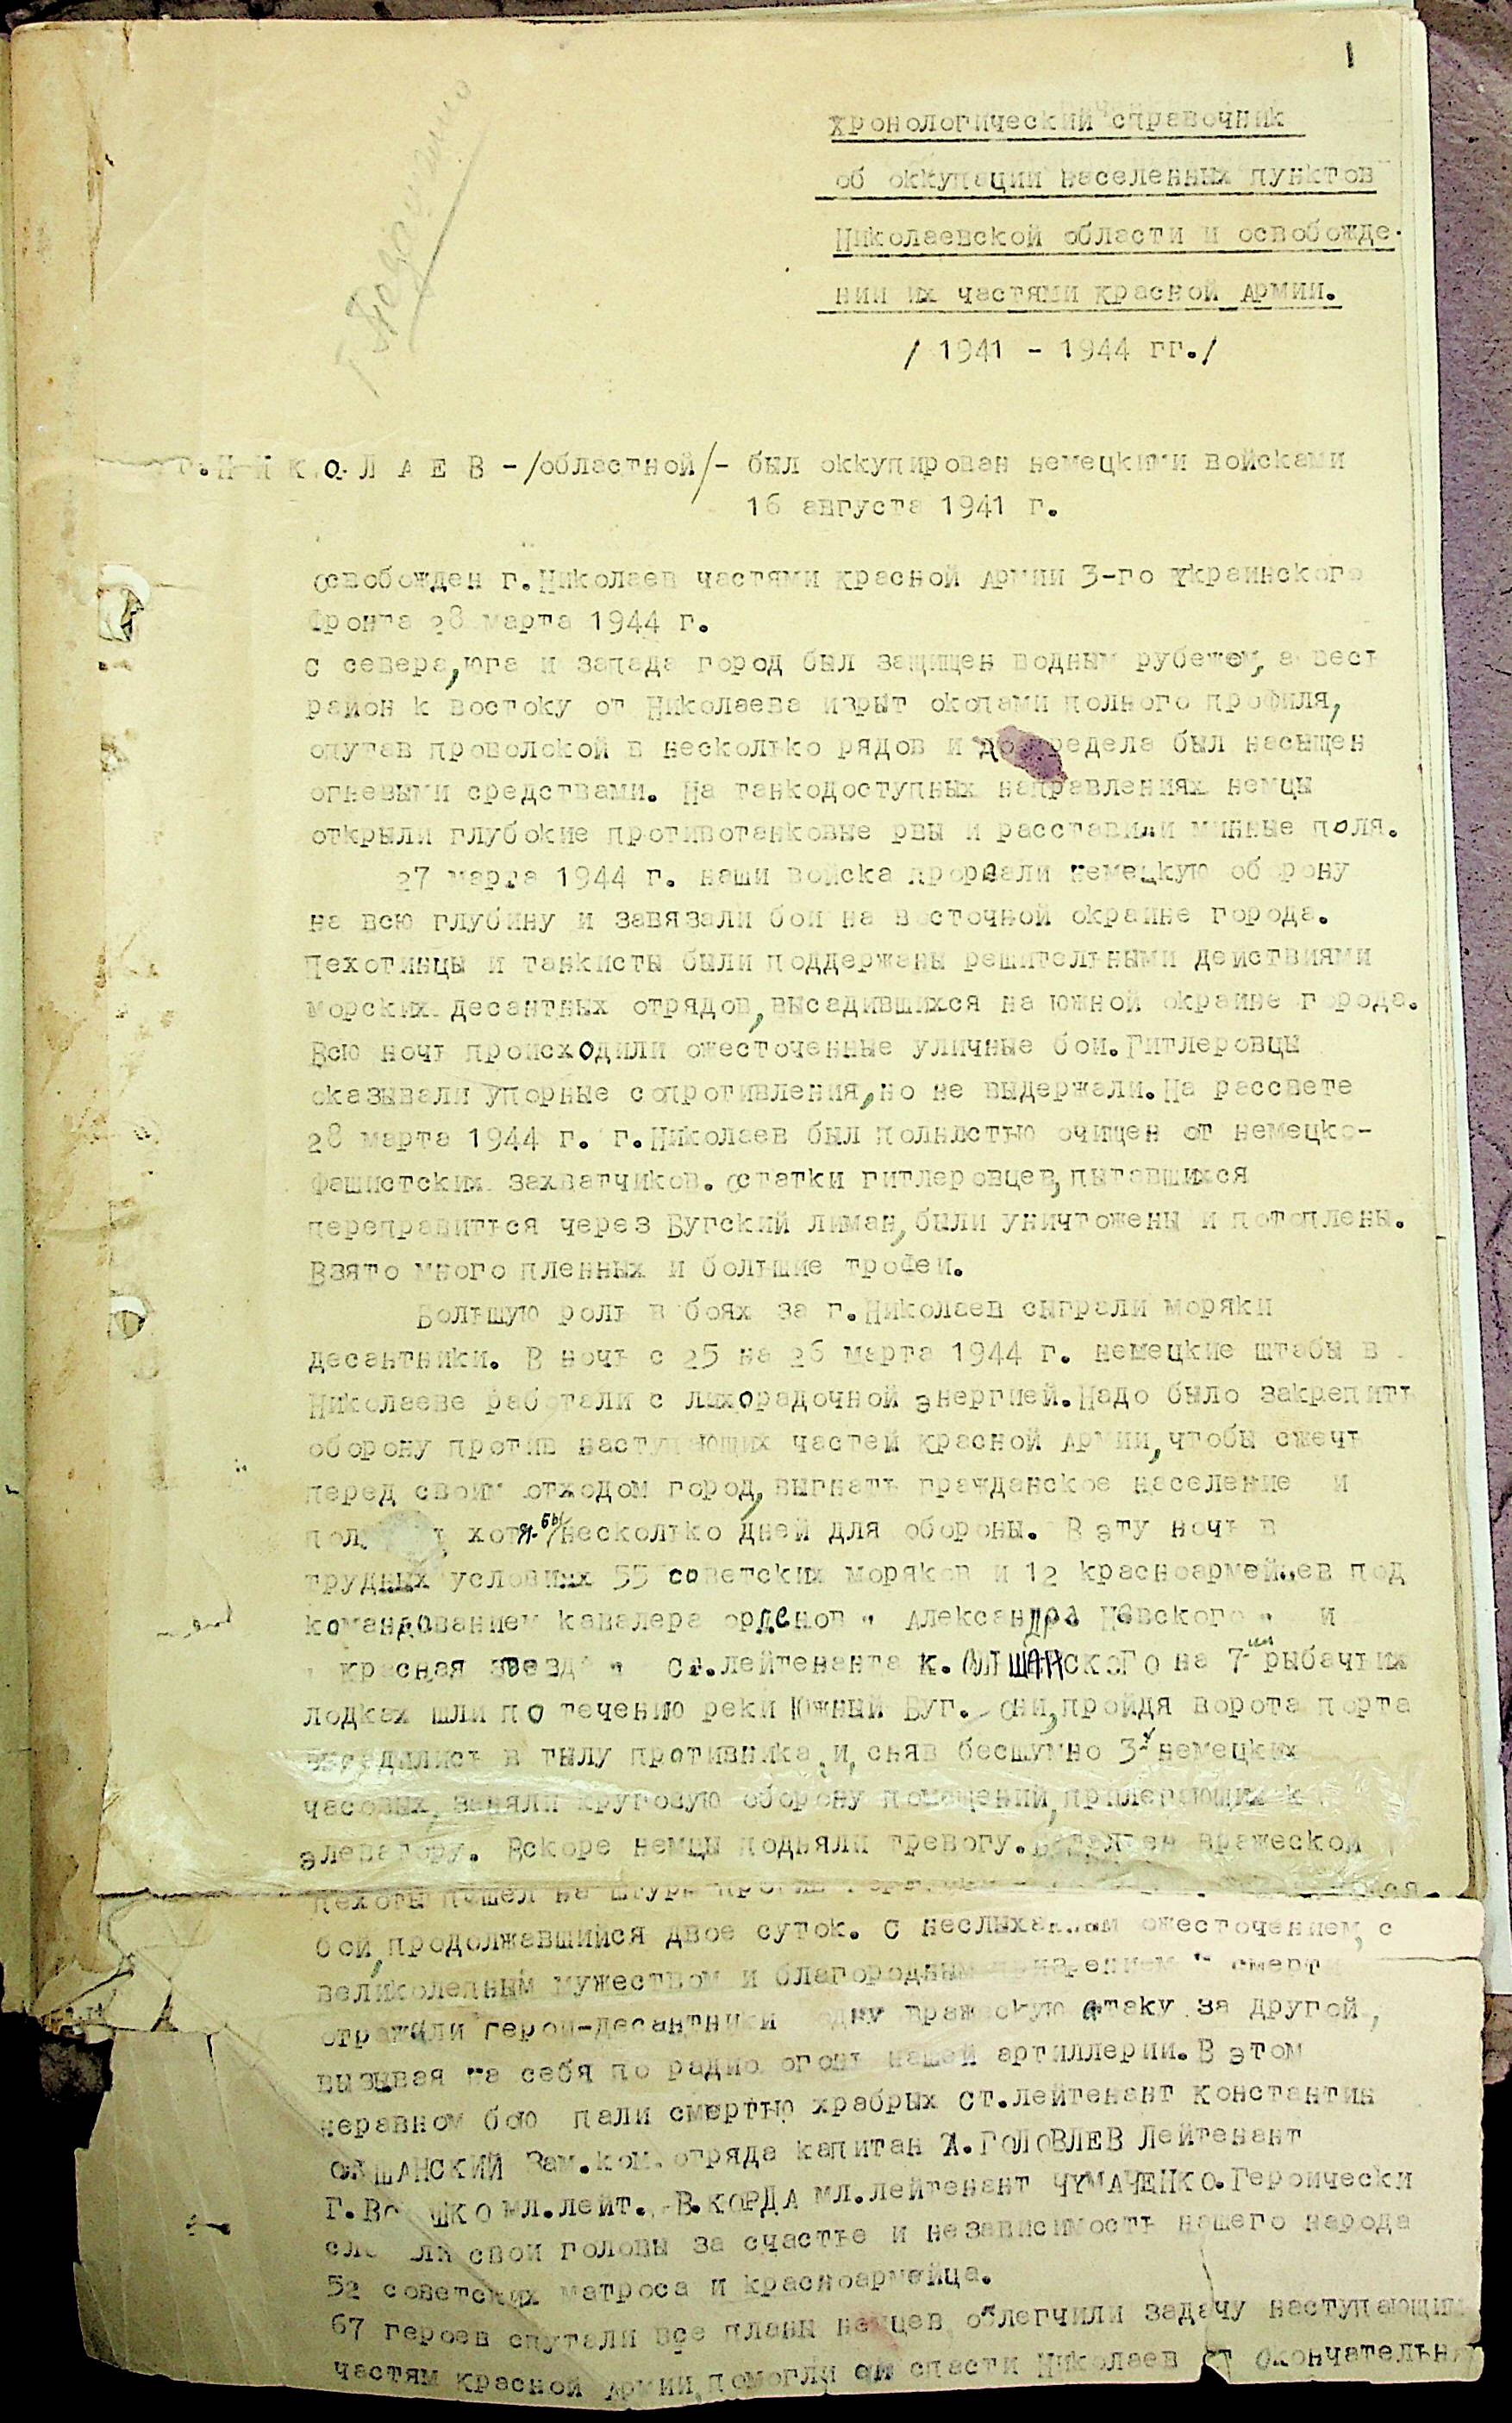 1
хронологический справочник
об оккупации населенных пунктов
Николаевской области и освобожде-
нии их частями Красной Армии.
/ 1941 - 1944 гг./
г.Н И К О Л А Е В -/областной/- был оккупирован немецкими войсками
16 августа 1941 г.
Освобожден г.Николаев частями Красной Армии 3-го Украинского
Фронта 28 марта 1944 г.
С севера, юга и запада город был защищен водным рубежем, а весь
район к востоку от Николаева изрыт окопами полного профиля,
опутав проволской в несколько рядов и до предела был насыщен
огневыми средствами. На танкодоступных направлениях немцы
открыли глубокие противотанковые рвы и расставили минные поля.
27 марта 1944 г. наши войска прорвали немецкую оборону
на всю глубину и завязали бои на восточной окраине города.
Пехотинцы и танкисты были поддержаны решительными действиями
морских десантных отрядов, высадившихся на южной окраине города.
Всю ночь происходили ожесточенные уличные бои. Гитлеровцы
оказывали упорные сопротивления, но не выдержали. На рассвете
28 марта 1944 г. г.Николаев был полностью очищен от немецко-
фашистских захватчиков. Остатки гитлеровцев, пытавшихся
переправиться через Бугский лиман, были уничтожены и потоплены.
Взято много пленных и большие трофеи.
Большую роль в боях за г.Николаев сыграли моряки
десантники. В ночь с 25 на 26 марта 1944 г. немецкие штабы в
Николаеве работали с лихорадочной энергией. Надо было закрепить
оборону против наступающих частей Красной Армии, чтобы сжечь
перед своим отходом город, выгнать гражданское население и
хотя-бы несколько дней для обороны. В эту ночь в
трудных условиях 55 советских моряков и 12 красноармейцев под
командованием кавалера орденов " Александра Невского " и
" Красная звезда " Ст.лейтенанта К. ОЛЬШАНСКОГО на 7-ми рыбачьих
лодках шли по течению реки Южный Буг. Они, пройдя ворота порта
высадились в тылу противника и, сняв бесшумно 3-х немецких
часовых, заняли круговую оборону помещений, прилегающих к
элеватору. Вскоре немцы подняли тревогу. Батальен вражеской
пехоты пошел на штурм против
бой, продолжавшийся двое суток. С неслыханным ожесточением, с
великолепным мужеством и благородным презрением к смерти
отражали герои-десантники одну вражескую атаку за другой,
вызывая на себя по радио огонь нашей артиллерии. В этом
неравном бою пали смертью храбрых ст.лейтенант Константин
ОЛЬШАНСКИЙ Зам.ком. отряда капитан А.ГОЛОВЛЕВ Лейтенант
Г. мл.лейт. В.КОРДА мл.лейтенант ЧУМАЧЕНКО. Героически
сложили свои головы за счастье и независимость нашего народа
52 советских матроса и красноармейца.
67 героев спутали все планы немцев, облегчили задачу наступающим
частям Красной Армии, помогли им спасти Николаев от окончательн